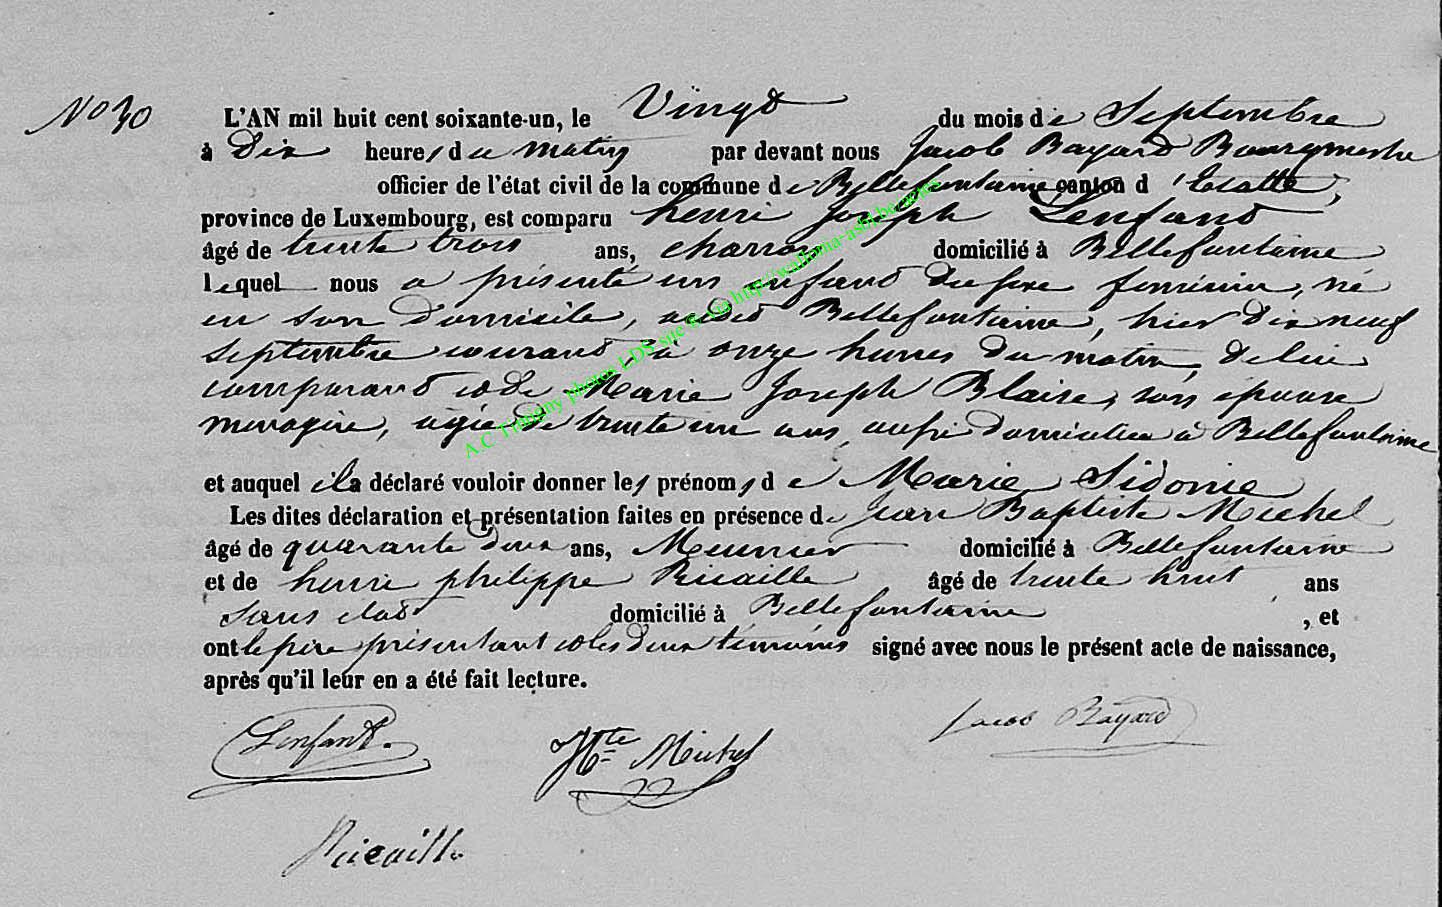 No 30
L'AN mil huit cent soixante-un, le Vingt du mois de Septembre
à Dix heures du matin par devant nous Jacob Bayard Bourgmestre
officier de l'état civil de la commune de Bellefontaine canton d'Etalle,
province de Luxembourg, est comparu henri Joseph Lenfant
âgé de trente trois ans, charron domicilié à Bellefontaine
lequel nous a présenté un enfant du sexe féminin, né
en son domicile, audit Bellefontaine, hier dix neuf
septembre courant à onze heures du matin, de lui
comparant et de Marie Joseph Blaise, son épouse
menagère, agée de trente un ans, aussi domiciliée à Bellefontaine
et auquel il a déclaré vouloir donner les prénoms de Marie Sidonie
Les dites déclaration et présentation faites en présence de Jean Baptiste Michel
âgé de quarante deux ans, Meunier domicilié à Bellefontaine
et de henri philippe Ricaille âgé de trente huit ans
sans état domicilié à Bellefontaine, et
ont le père présentant et les deux témoins signé avec nous le présent acte de naissance,
après qu'il leur en a été fait lecture.
Lenfant. Jbte Michel Jacob Bayard
Ricaille
A.C Tintigny photos LDS site